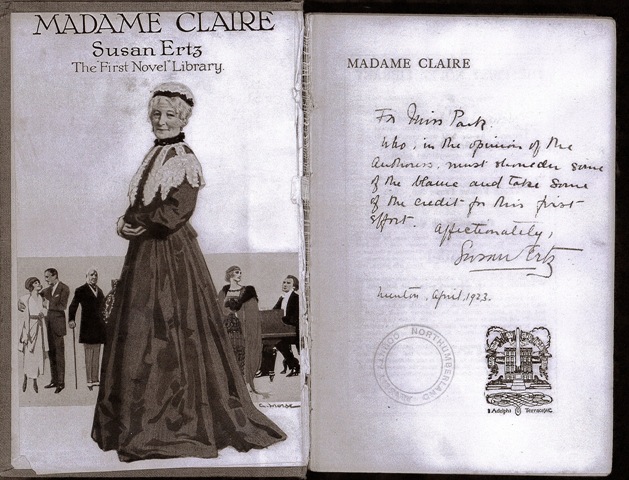 MADAME CLAIRE
Susan Ertz
The "First Novel" Library.
MADAME CLAIRE
For Miss Park.
Who, in the opinion of the
Authoress, must shoulder some
of the blame and take some
of the credit for this first
effort.
Affectionately,
Susan Ertz
Menton, April, 1923.
NORTHUMBERLAND COUNTY LIBRARY
1 Adelphi Terrace